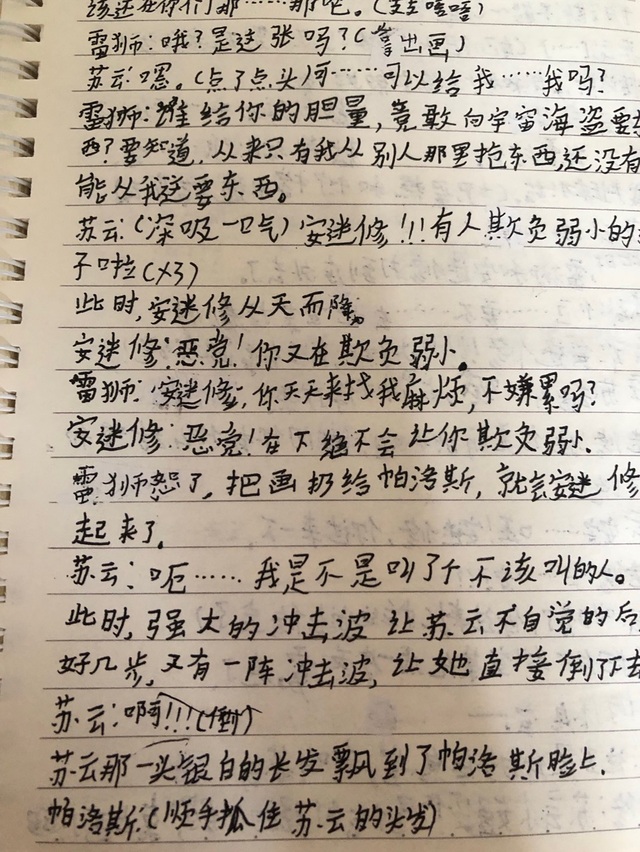 该还在你们那……那吧。(支支嘻嘻)
雷狮:哦?是这张吗?(拿出画)
苏云:嗯。(点了点头)可……可以给我……我吗?
雷狮:谁给你的胆量,竟敢向宇宙海盗要
西?要知道,从来只有我从别人那里抢东西,还没有
能从我这要东西。
苏云:(深吸一口气)安迷修!!!有人欺负弱小的
子啦(X3)
此时,安迷修从天而降。
安迷修:恶党!你又在欺负弱小。
雷狮:安迷修,你天天来找我麻烦,不嫌累吗?
安迷修:恶党!在下绝不会让你欺负弱小.
雷狮怒了,把画扔给帕洛斯,就会安迷修
起来了.
苏云:呃……我是不是叫了个不该叫的人。
此时,强大的冲击波让苏云不自觉的后
好几步,又有一阵冲击波,让她直接倒了下去
苏云:啊!!!(倒)
苏云那一头银白的长发飘到了帕洛斯脸上.
帕洛斯:(顺手抓住苏云的头发)